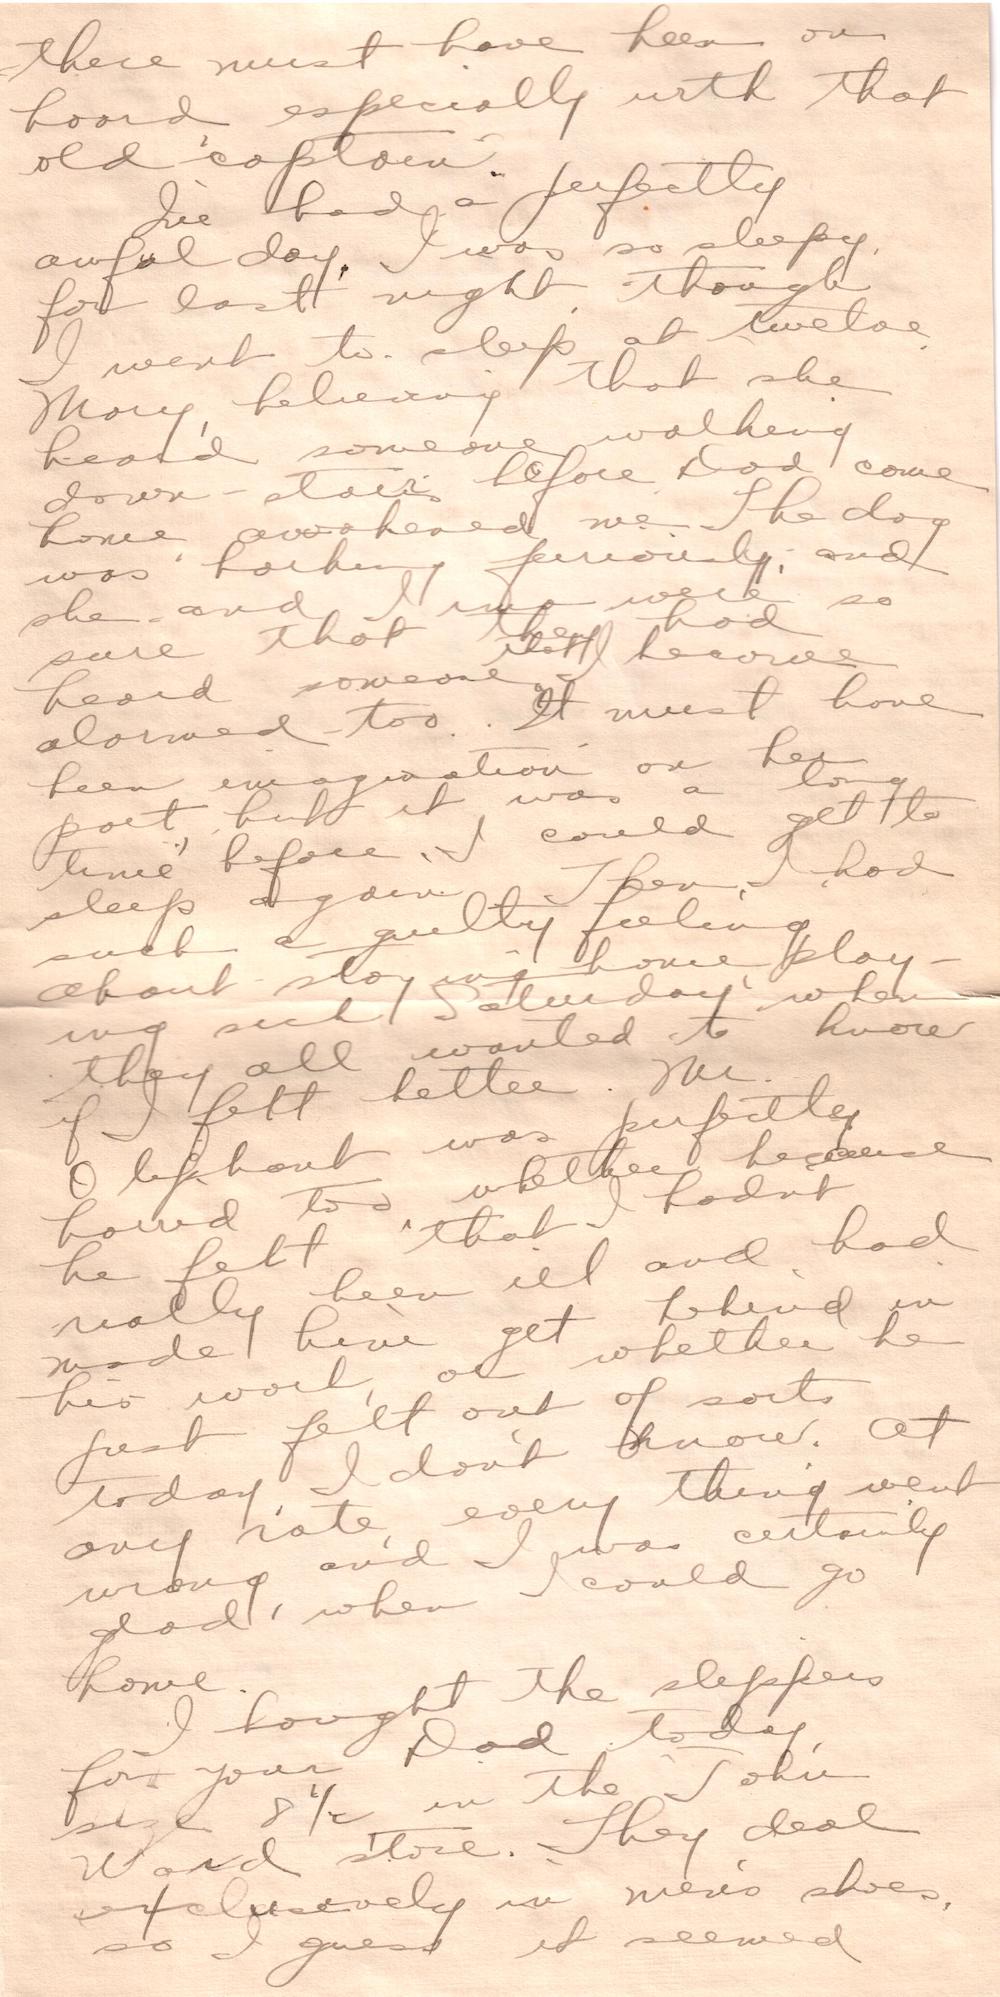 there must have been on
board, especially with that
old captain.
I've had a perfectly
awful day. I was so sleepy,
for last night, though
I went to sleep at twelve,
Mary, believing that she
heard someone walking
down-stairs before Dad came
home, awakened me. The dog
was barking furiously, and
she and I were so
sure that they had
heard someone, I became
alarmed too. It must have
been imagination on her
part, but it was a long
time before I could get to
sleep again. Then, I had
such a guilty feeling
about staying home, play-
ing sick, Saturday when
they all wanted to know
if I felt better. Mr.
Oliphant was perfectly
horrid too, whether because
he felt that I hadn't
really been ill and had
made him get behind in
his work, or whether he
just felt out of sorts
today, I don't know. At
any rate, every thing went
wrong and I was certainly
glad, when I could go
home.
I bought the slippers
for your Dad today,
size 8 1/2 in the John
Ward store. They deal
exclusively in men's shoes,
so I guess it seemed